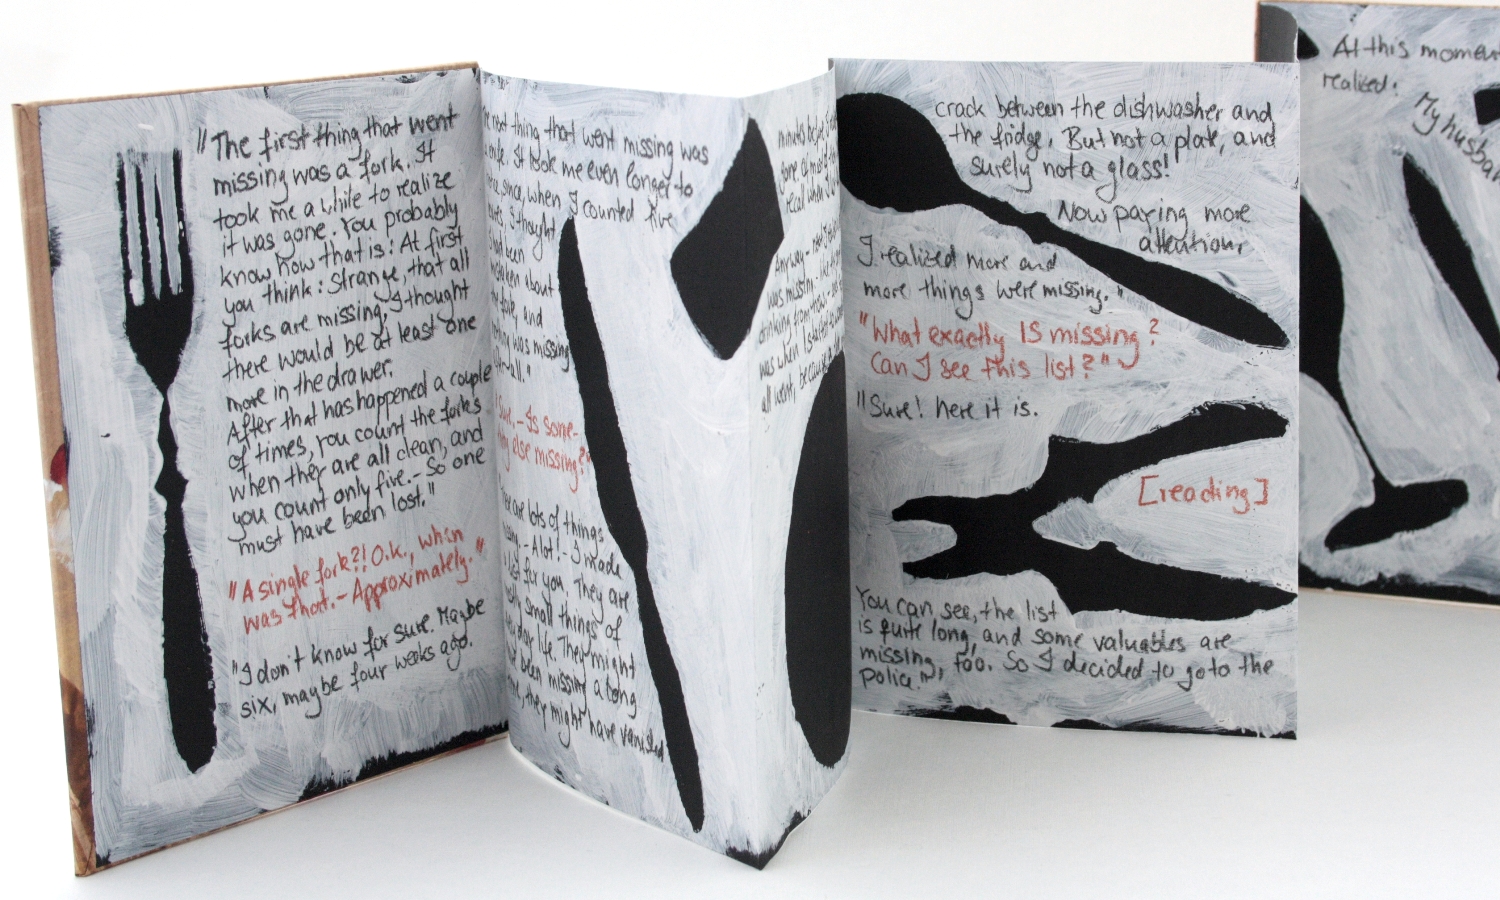 "The first thing that went
missing was a fork. It
took me a while to realize
it was gone. You probably
know how that is: At first
you think: Strange, that all
forks are missing, I thought
there would be at least one
more in the drawer.
After that has happened a couple
of times, you count the forks
when they are all clean, and
you count only five. - So one
must have been lost."
"A single fork?! O.k., when
was that. - Approximately."
"I don't know for sure. Maybe
six, maybe four weeks ago.
next thing that went missing was
knife. It took me even longer to
since, when I counted five
I thought
had been
mistaken about
the fork, and
nothing was missing
after all."
Sure. - Is some-
thing else missing?"
There are lots of things
missing. - A lot! - I made
a list for you. They are
mostly small things of
every day life. They might
have been missing a long
time, they might have vanished
minutes before
gone
recall when I
Anyway -
was missing.
drinking from
was when I started to
all went, because
crack between the dishwasher and
the fridge. But not a plate, and
surely not a glass!
Now paying more
attention,
I realized more and
more things were missing."
"What exactly IS missing?
Can I see this list?"
"Sure! here it is.
[reading]
You can see, the list
is quite long, and some valuables are
missing, too. So I decided to go to the
police."
At this moment
realized:
My husband